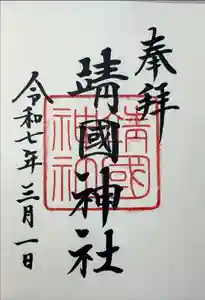 奉拜
靖國神社
令和七年三月一日
靖國神社